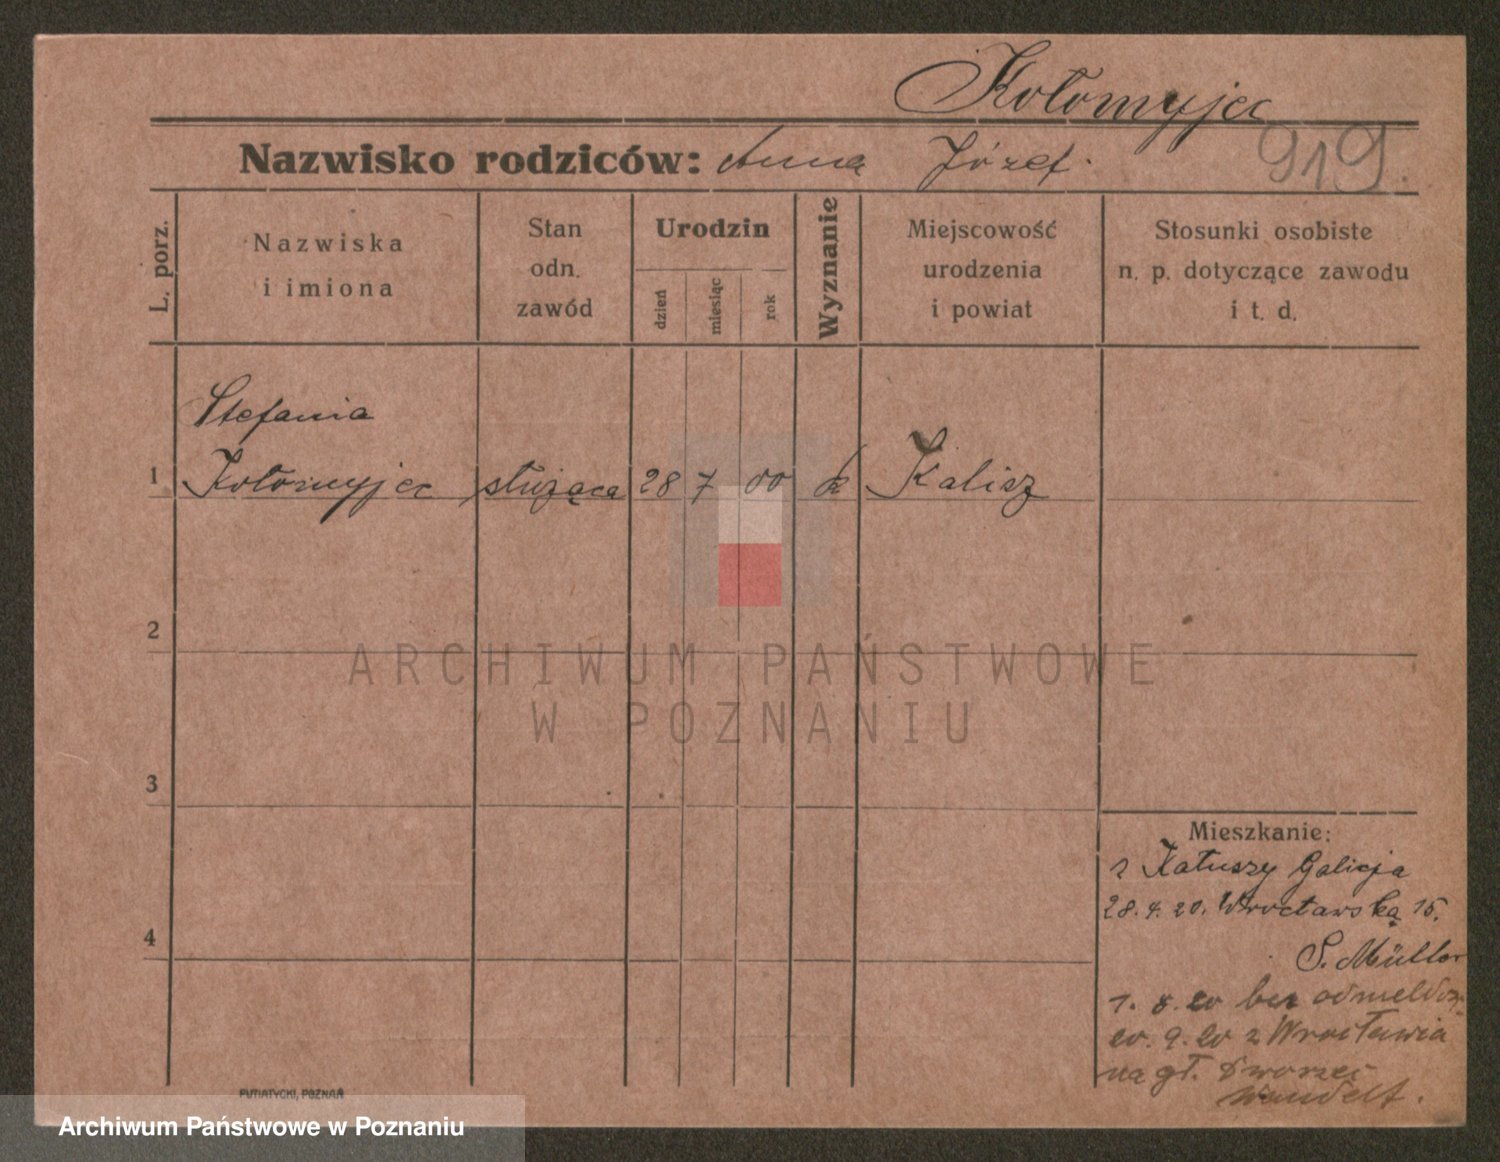 Kołomyjec
Nazwisko rodziców: Anna Józef.
919.
L. porz.
Nazwiska
i imiona
Stan
odn.
zawód
Urodzin
dzień
miesiąc
rok
Wyznanie
Miejscowość
urodzenia
i powiat
Stosunki osobiste
n. p. dotyczące zawodu
i t. d.
Stefania
1 Kołomyjec służąca 28 7 00 k Kalisz
2
ARCHIWUM PAŃSTWOWE
W POZNANIU
3
4
Mieszkanie:
z Kałuszy Galicja
28.4.20. Wrocławska 15.
S. Müller
1. 8. 20 bez odmeldow.
20. 9. 20 z Wrocławia
na gł. Dworzec
PUTIATYCKI, POZNAŃ
Archiwum Państwowe w Poznaniu